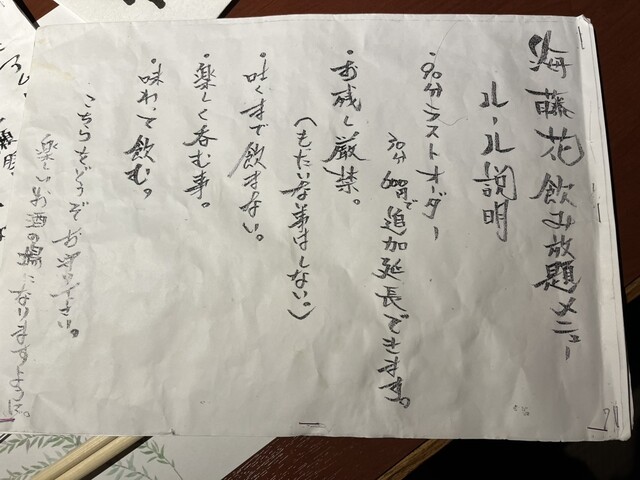 海藤花飲み放題メニュー
ルール説明
・90分ラストオーダー
30分600円で追加延長できます。
・お残し厳禁。
(もったいない事はしない。)
・吐くまで飲まない。
・楽しく呑む事。
・味わって飲む。
こちらをどうぞお守り下さい。
楽しいお酒の場になりますように。